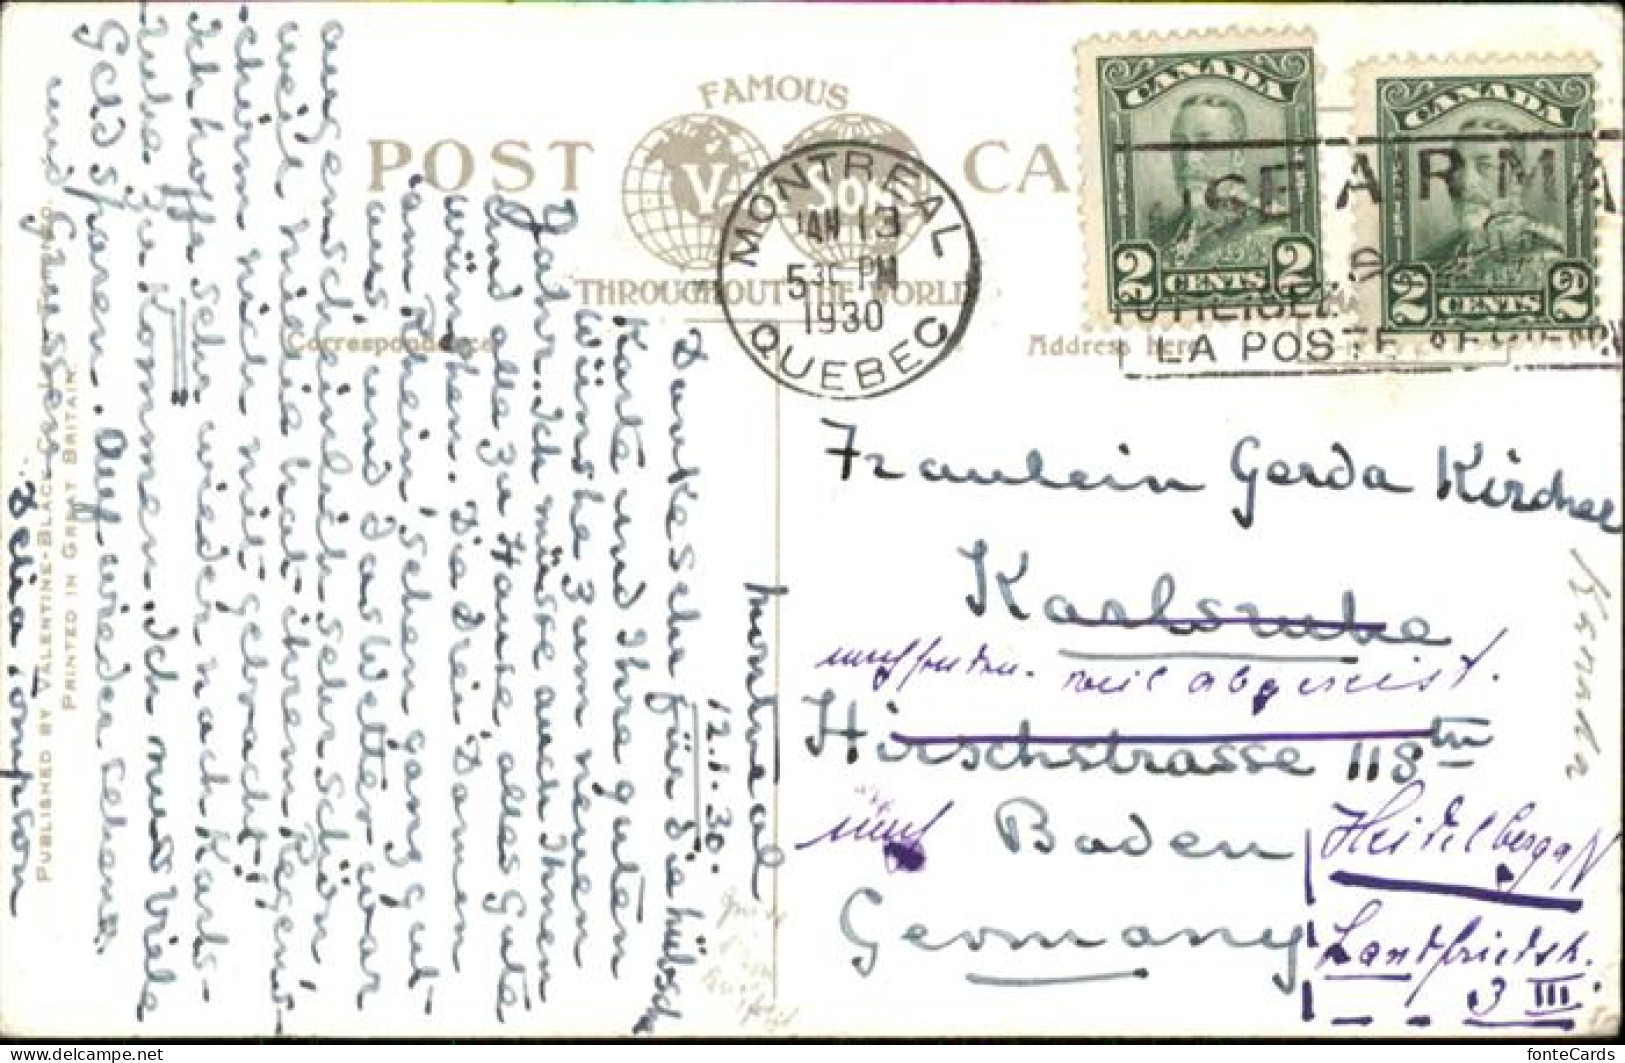 FAMOUS
POST CA
V & Sons
THROUGHOUT THE WORLD
Correspondence
Address here
CANADA
2 CENTS 2
CANADA
2 CENTS 2
MONTREAL
JAN 13
5 PM
1930
QUEBEC
USE AIR MA
UTILISEZ
LA POSTE AERIENN
Montreal
12.1.30.
Dankesehr für die hübsche
Karte und Ihre guten
Wünsche zum neuen
Jahr. Ich müsse auch Ihnen
und alle zu Hause, alles Gute
wünschen. Die drei Damen
"am Rhein" sehen ganz gut
aus und das Wetter war
augenscheinlich sehr schön,
weil Lydia hat ihrem Regen-
schirm nich mitgebracht!!
Ich hoffe sehr wieder nach Karls-
ruhe zu Kommen. Ich muss viele
Geld sparen. Auf wiedersehen.
und Grüssen
Delia Tompson
PUBLISHED BY VALENTINE-BLACK CO. LTD. TORONTO.
PRINTED IN GREAT BRITAIN.
Fraulein Gerda Kirchner
Karlsruhe
weil abgereist.
Hirschstrasse 118
Baden
Germany
Heidelberg
Landfriedstr.
3 III.
Kanada
delcampe.net
fonteCards